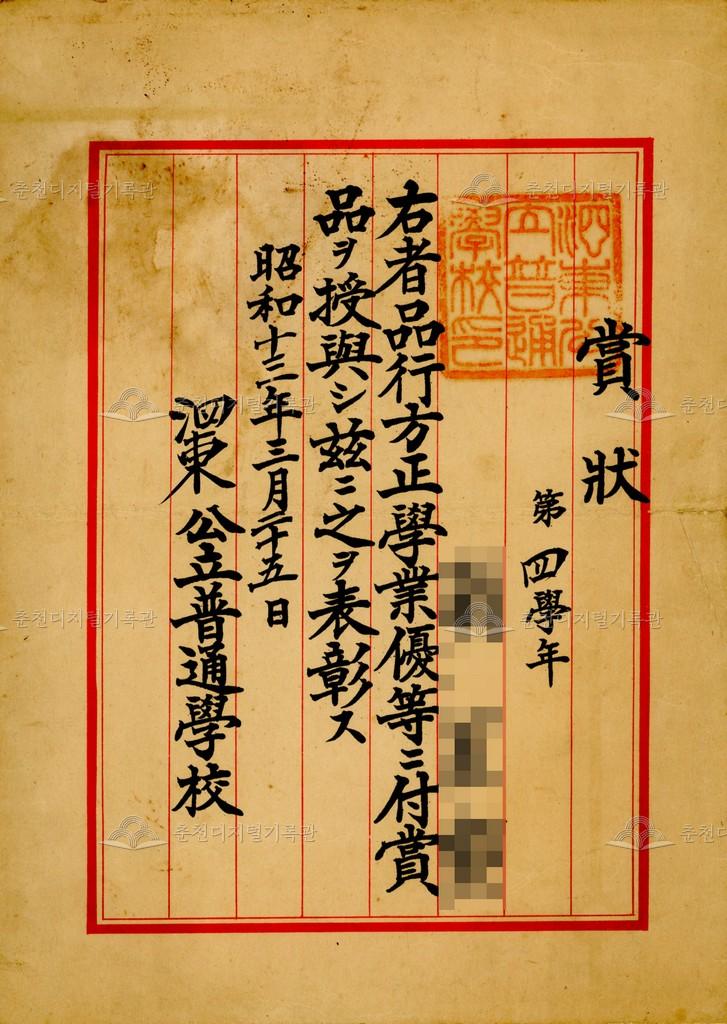 賞狀
第四學年
右者品行方正學業優等ニ付賞
品ヲ授與シ茲ニ之ヲ表彰ス
昭和十三年三月二十五日
泗東公立普通學校
泗東公
立普通
學校印
춘천디지털기록관
춘천디지털기록관
춘천디지털기록관
춘천디지털기록관
춘천디지털기록관
춘천디지털기록관